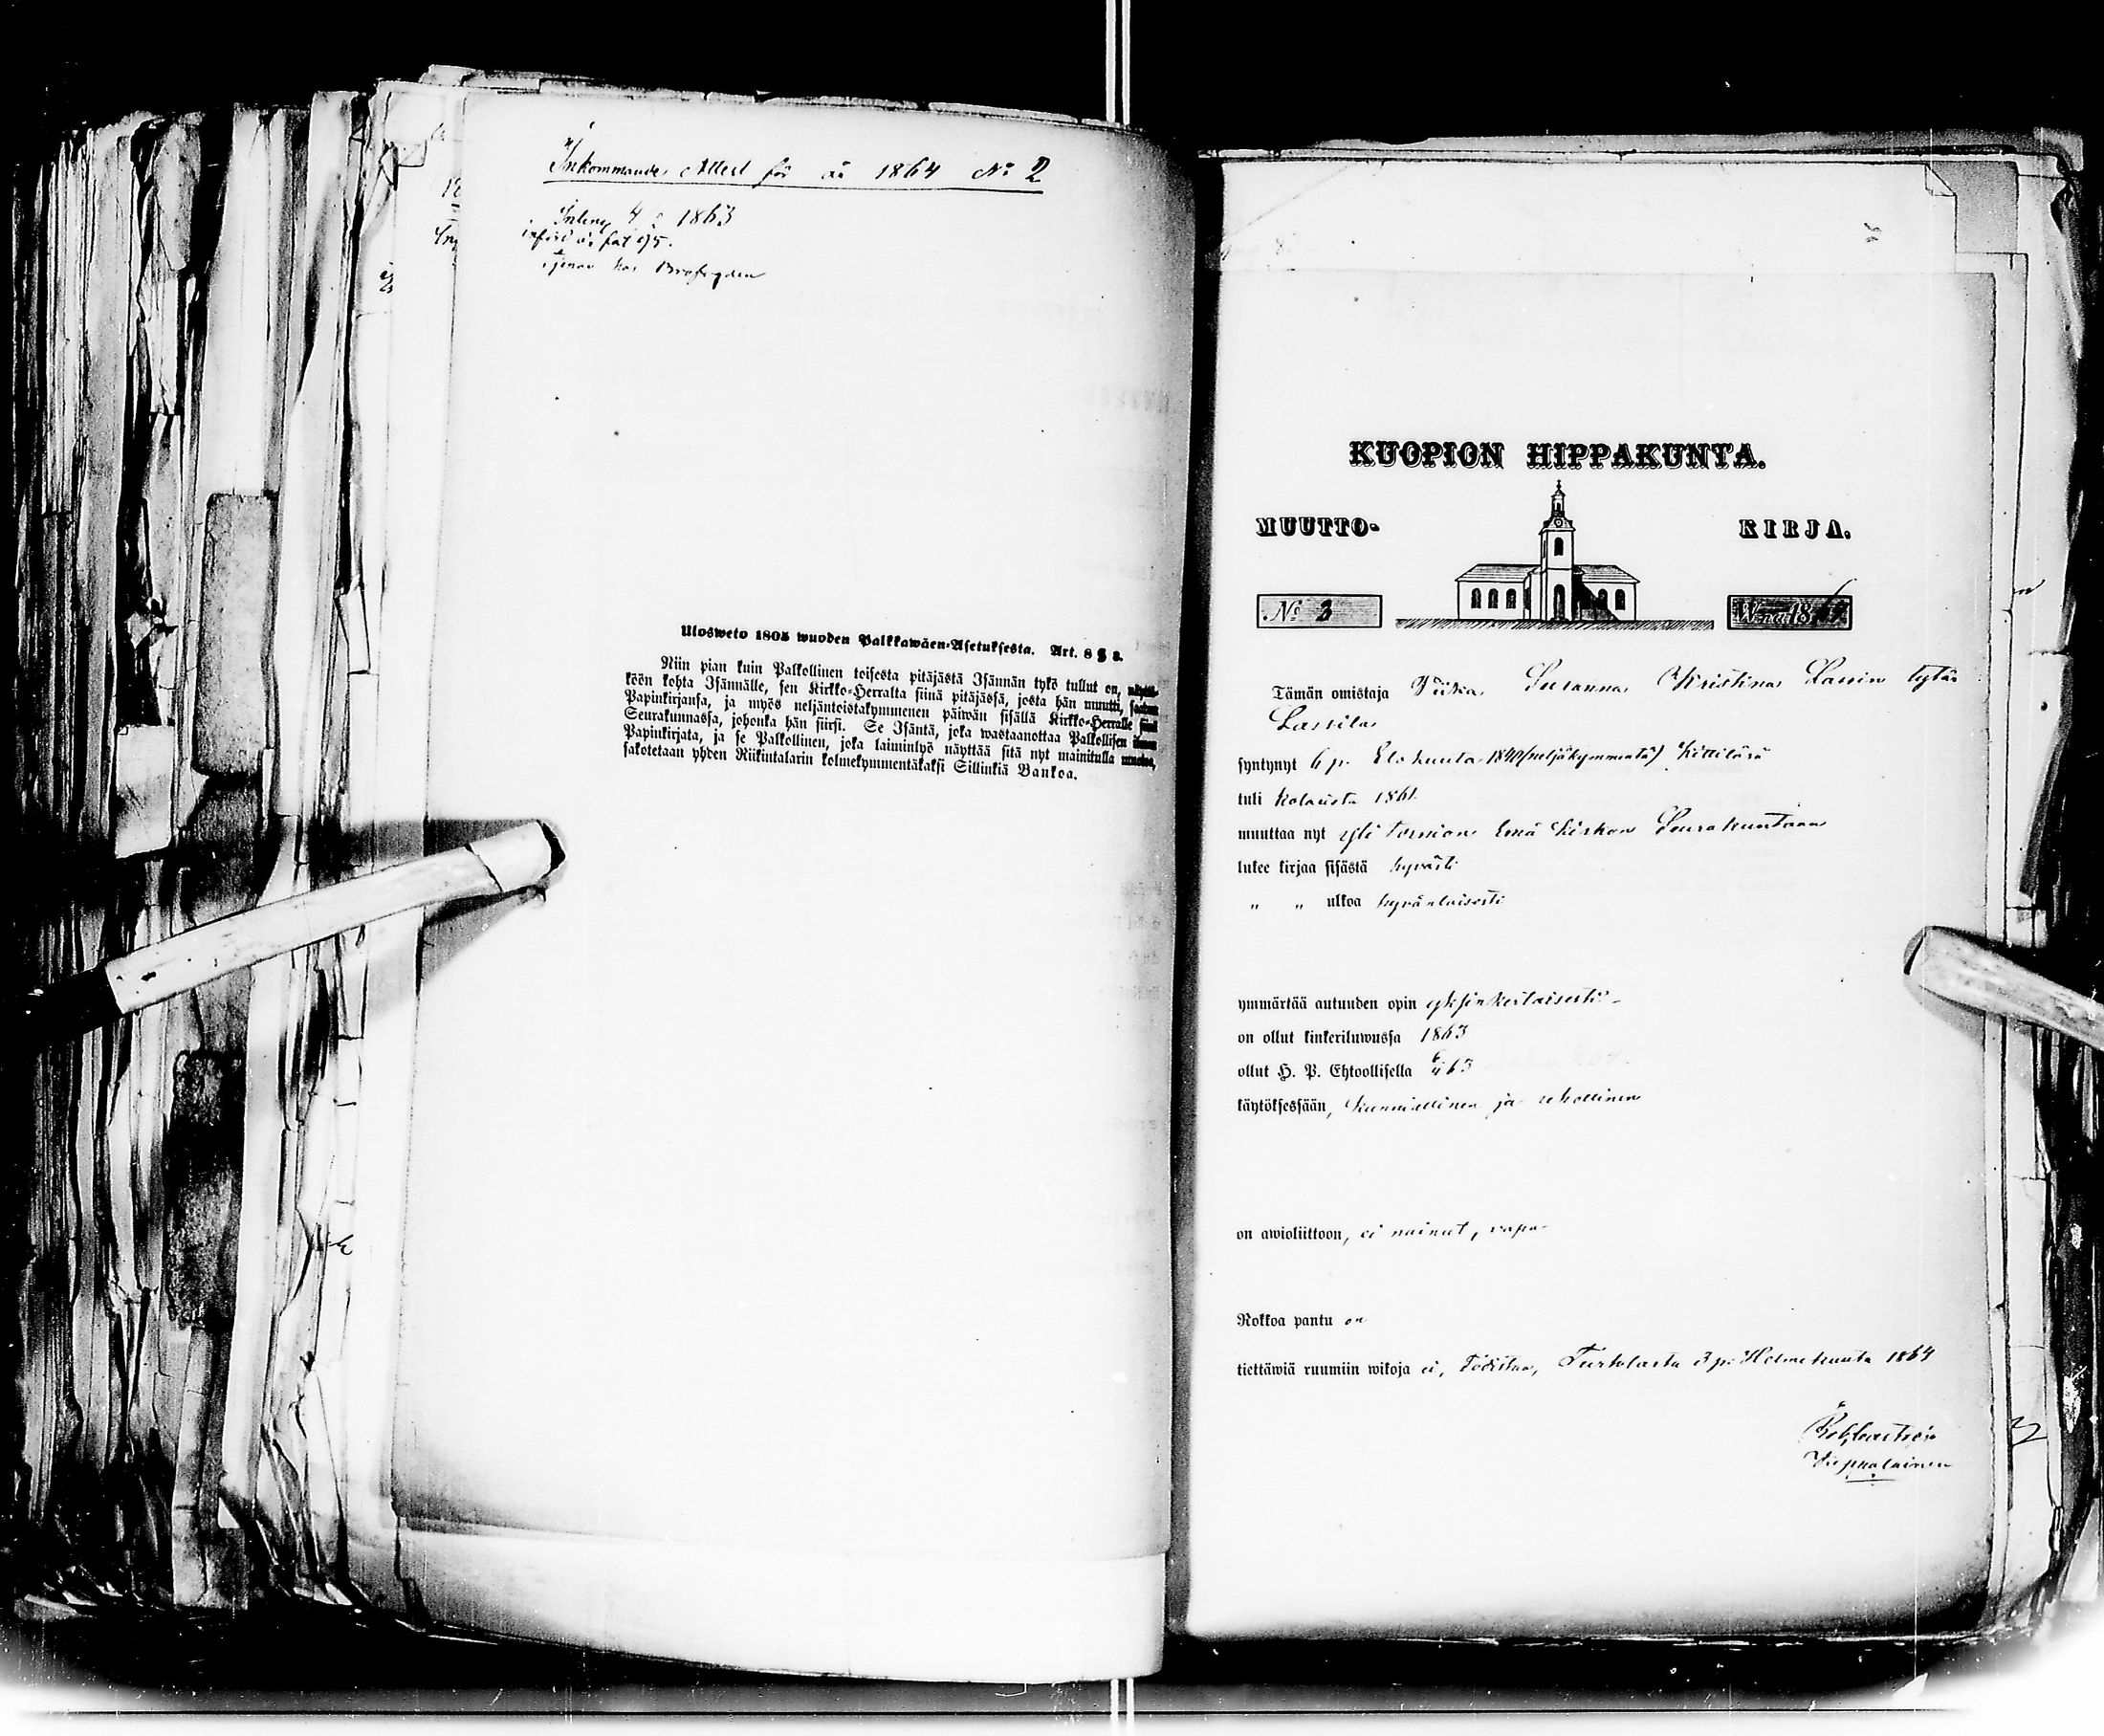 Inkommande Attest för år 1864 No 2
1863
införd å fol 95.
hos
Ulosweto 1805 wuoden Palkkawäen-Asetuksesta. Art. 8 § 8.
Niin pian kuin Palkollinen toisesta pitäjästä Isännän tykö tullut on, näyttä-
köön kohta Isännälle, sen Kirkko-Herralta siinä pitäjässä, josta hän muutti, saatun
Papinkirjansa, ja myös neljäntoistakymmenen päiwän sisällä Kirkko-Herralle siinä
Seurakunnassa, johonka hän siirsi. Se Isäntä, joka wastaanottaa Palkollisen ilman
Papinkirjata, ja se Palkollinen, joka laiminlyö näyttää sitä nyt mainitulla muotoa,
sakotetaan yhden Riikintalarin kolmekymmentäkaksi Sillinkiä Bankoa.
KUOPION HIPPAKUNTA.
MUUTTO- KIRJA.
No 3 W:na 186
Tämän omistaja Piika Susanna Kristina Lassin tytär
Lassila
syntynyt 6 p. Elokuuta 1840 (neljäkymmentä) Kittilässä
tuli Kolarista 1861
muuttaa nyt yli Tornion Emä Kirkon Seurakuntaan
lukee kirjaa sisästä hyvästi
" " ulkoa hyvänlaisesti
ymmärtää autuuden opin yksinkertaisesti
on ollut kinkeriluwussa 1863
ollut H. P. Ehtoollisella 63
käytöksessään, kunniallinen ja rehellinen
on awioliittoon, ei nainut, vapa
Rokkoa pantu on
tiettäwiä ruumiin wikoja ei, Todistaa, Turtolasta 3 p. Helmekuuta 1864